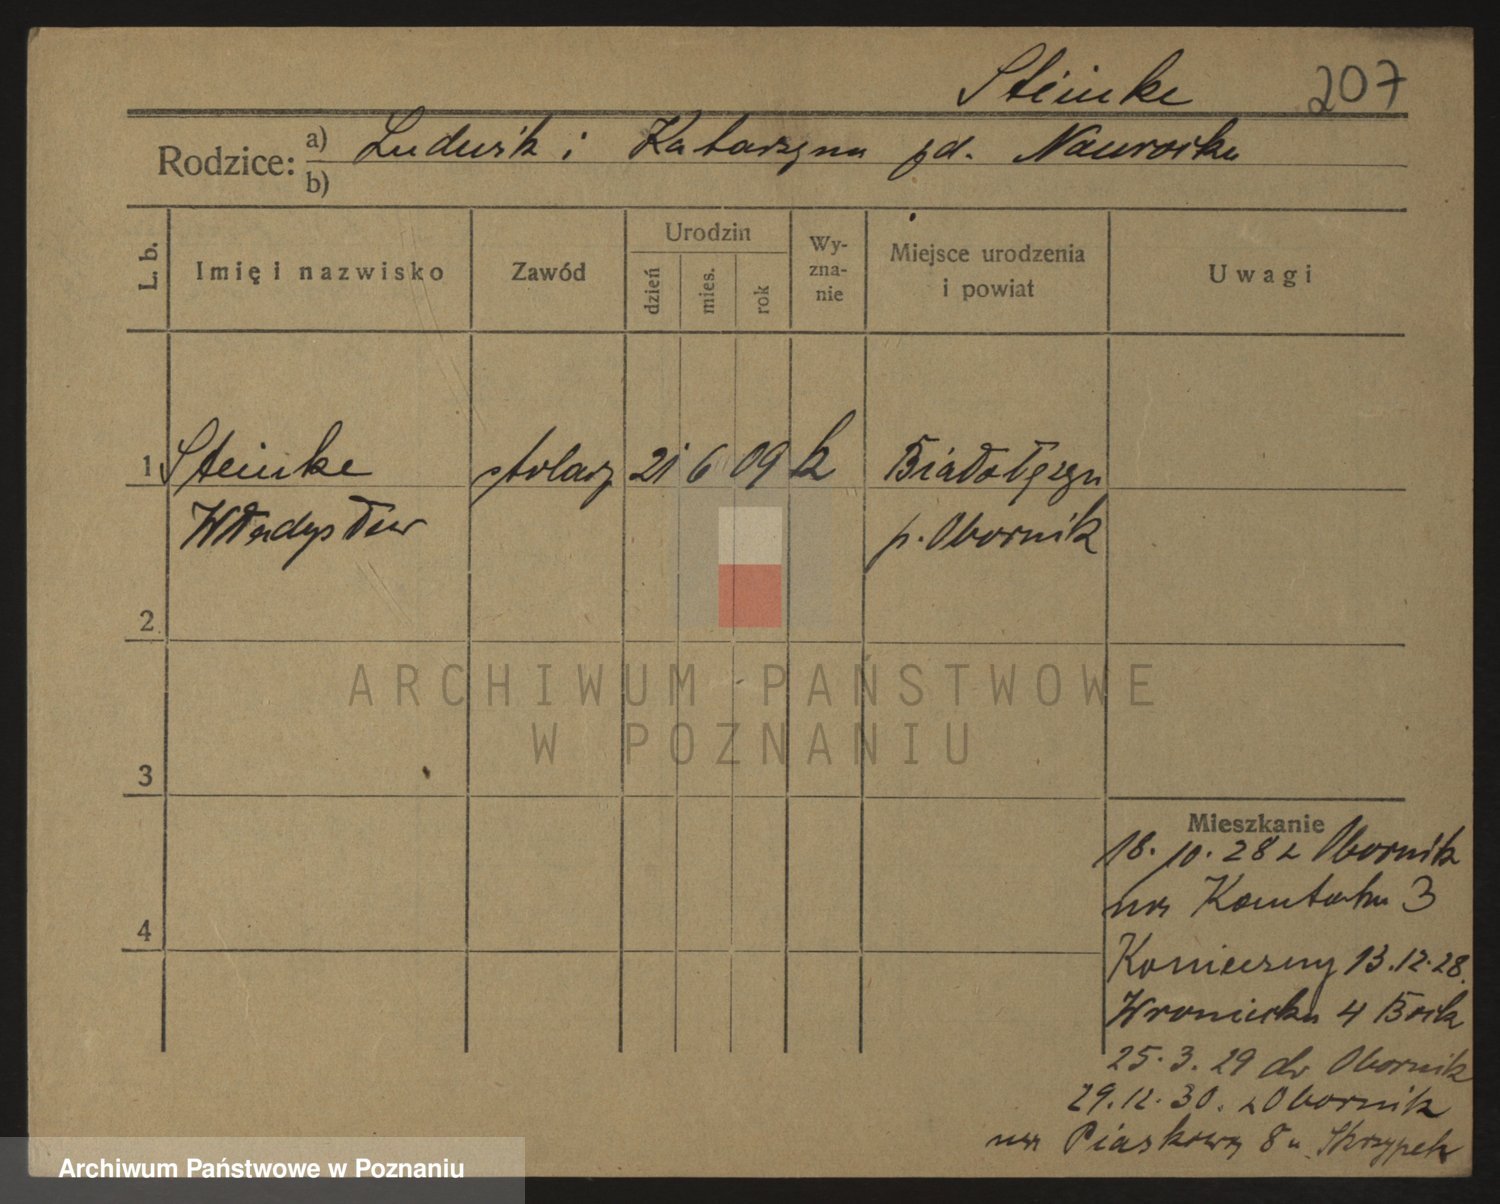 Steinke 207
Rodzice: a) Ludwik i Katarzyna pd. Nawrocka
b)
L. b.
Imię i nazwisko
Zawód
Urodzin
dzień
mies.
rok
Wy-
zna-
nie
Miejsce urodzenia
i powiat
Uwagi
1 Steinke stolarz 21 6 09 k Białołęzyn
Władysław p. Obornik
2
3
4
ARCHIWUM PAŃSTWOWE
W POZNANIU
Mieszkanie
18. 10. 28 z Obornik
na 3
Konieczny 13.12.28.
Wroniecka 4 Bock
25. 3. 29 do Obornik
29. 12. 30. z Obornik
na Piaskową 8 u. Skrzypek
Archiwum Państwowe w Poznaniu